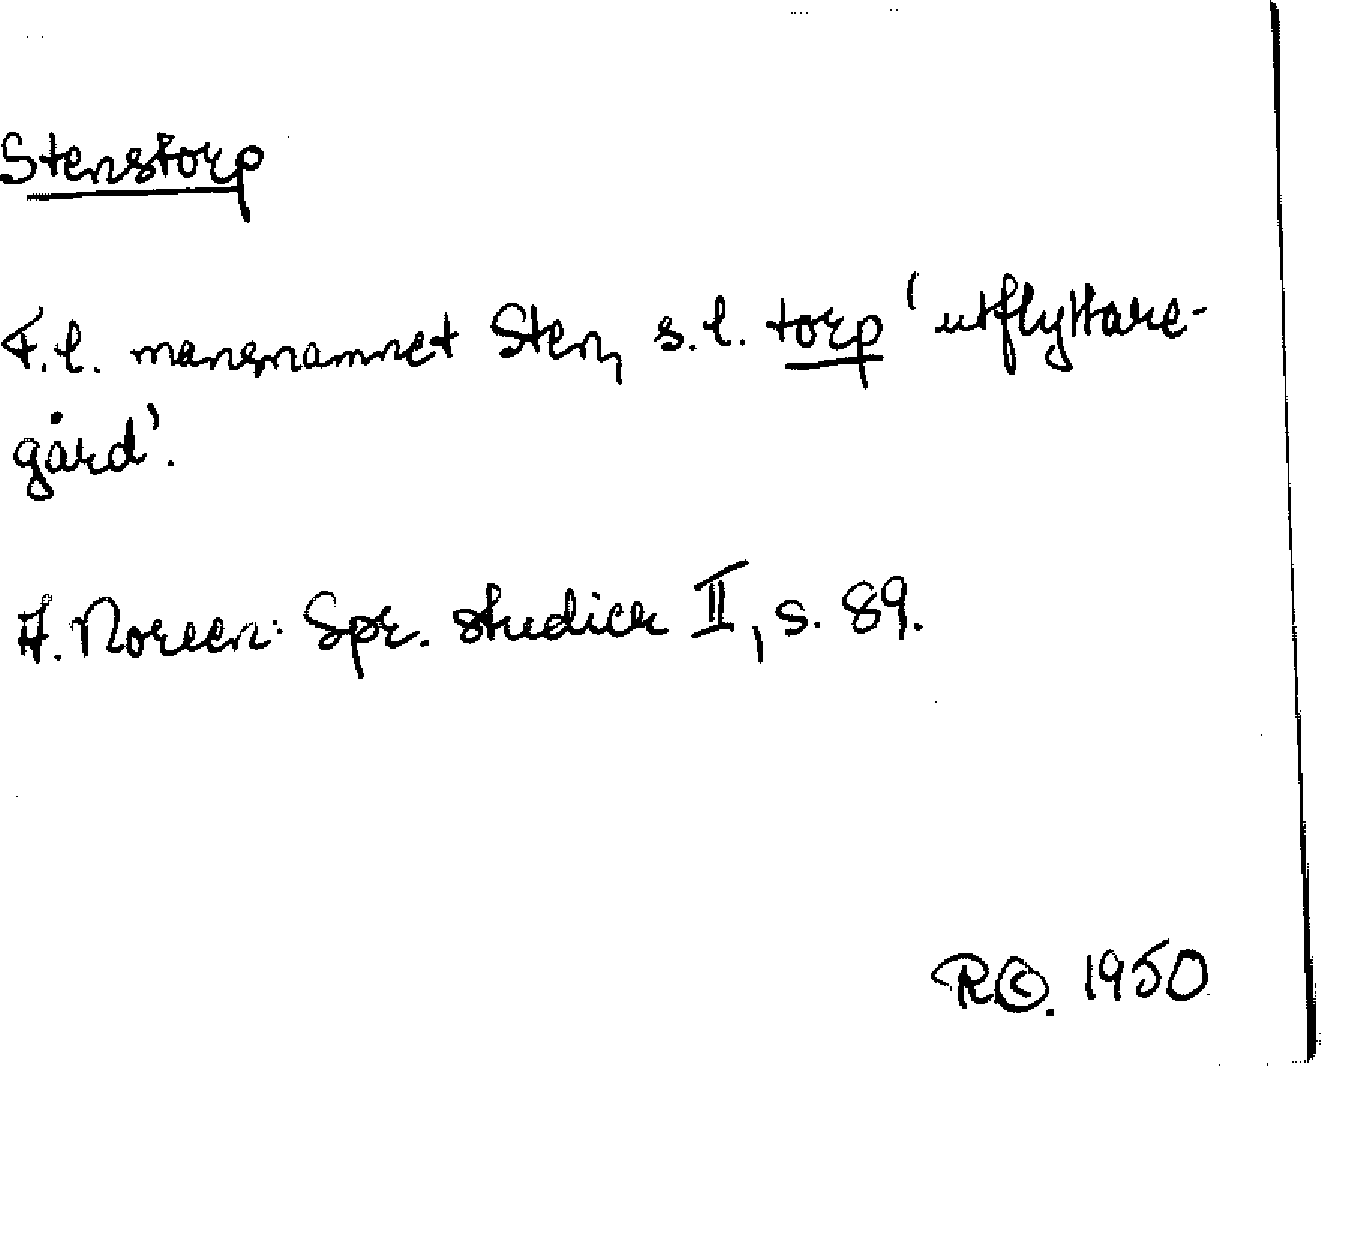 Stenstorp
F.l. mansnamnet Sten, s.l. torp 'utflyttare-
gård'.
A. Noreen: Spr. studier II, s. 89.
1950